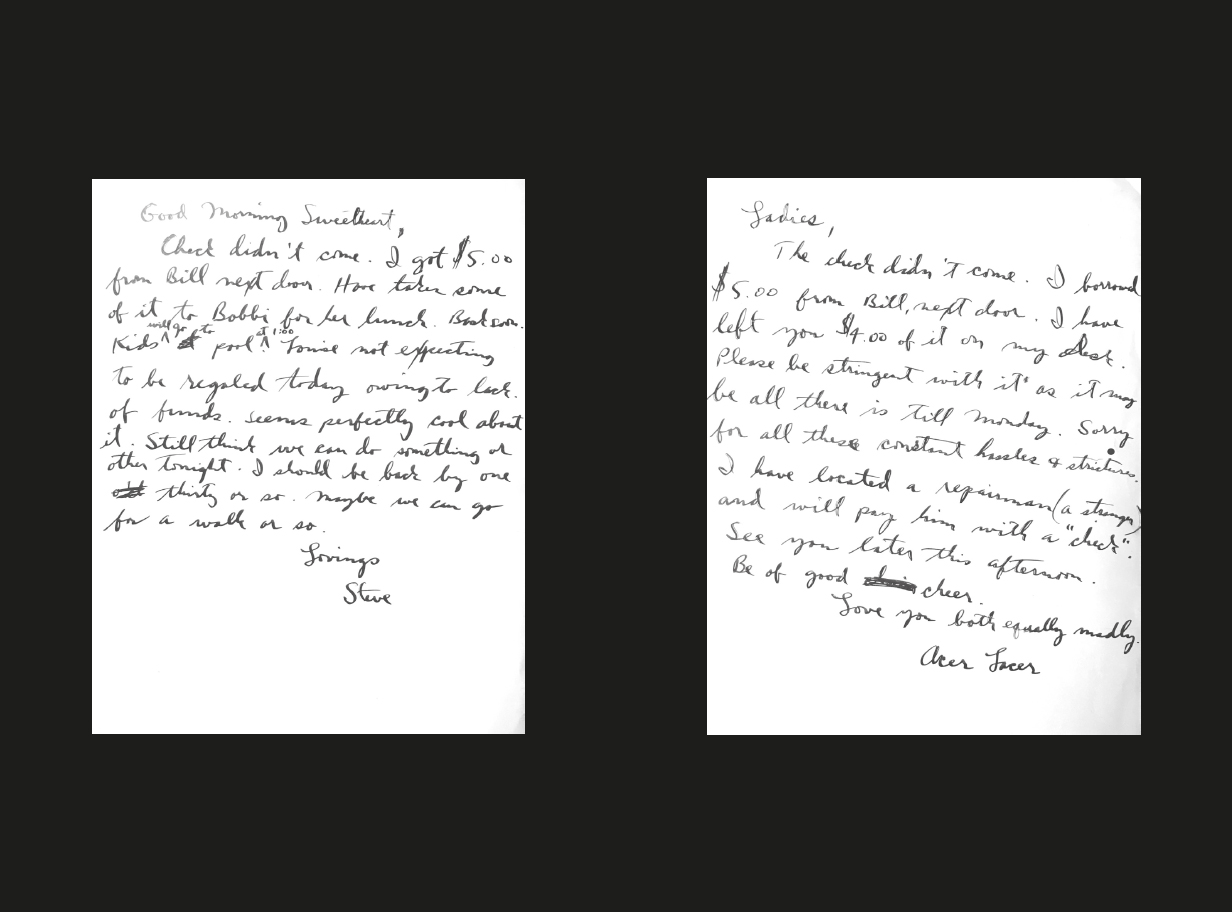 Good Morning Sweetheart,
Check didn't come. I got $5.00
from Bill next door. Have taken some
of it to Bobbi for her lunch. Back soon.
Kids will go to pool at 1:00. Louise not expecting
to be regaled today owing to lack
of funds. Seems perfectly cool about
it. Still think we can do something or
other tonight. I should be back by one
thirty or so. Maybe we can go
for a walk or so.
Lovings
Steve
Ladies,
The check didn't come. I borrowed
$5.00 from Bill, next door. I have
left you $4.00 of it on my desk.
Please be stringent with it as it may
be all there is till Monday. Sorry
for all these constant hassles & strictures.
I have located a repairman (a stranger)
and will pay him with a "check".
See you later this afternoon.
Be of good cheer.
Love you both equally madly.
Acer Lacer